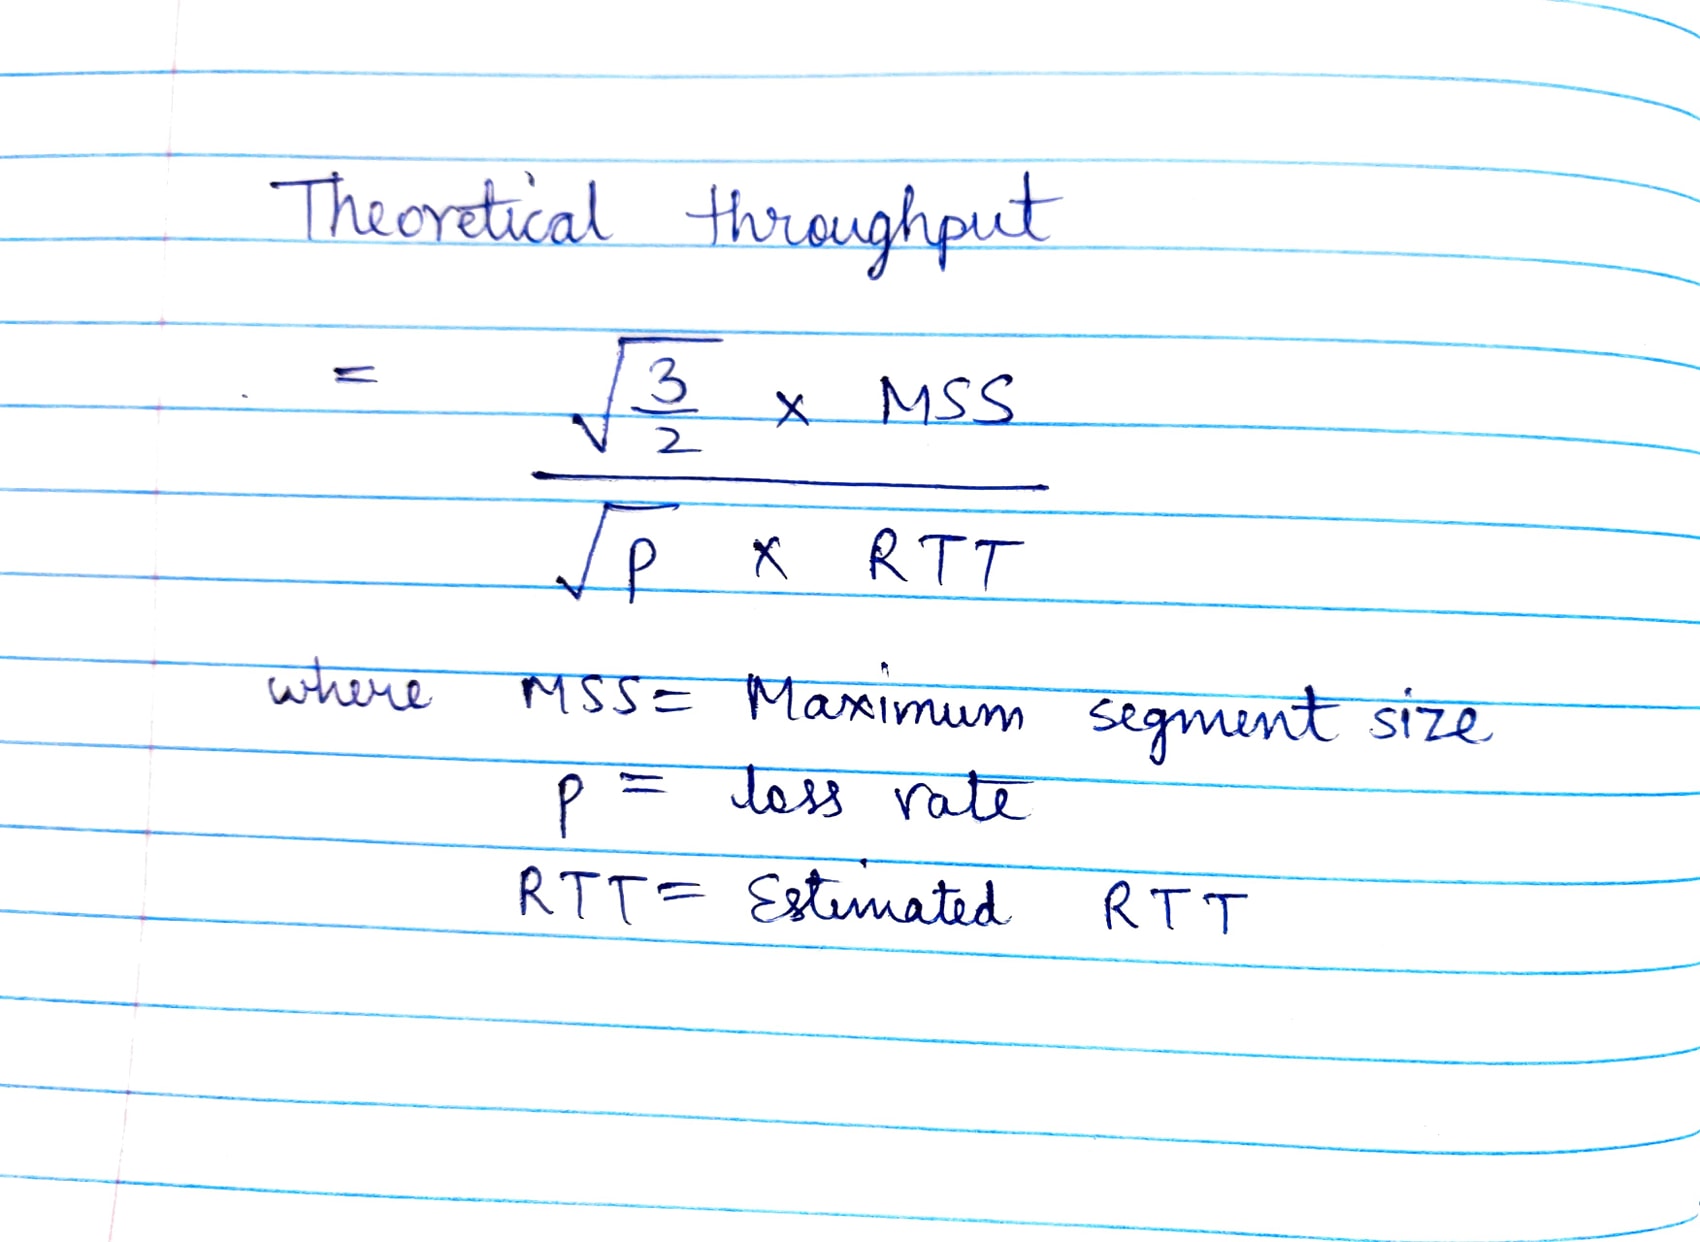 Theoretical throughput
= √(3/2) × MSS
√p × RTT
where MSS = Maximum segment size
p = loss rate
RTT = Estimated RTT